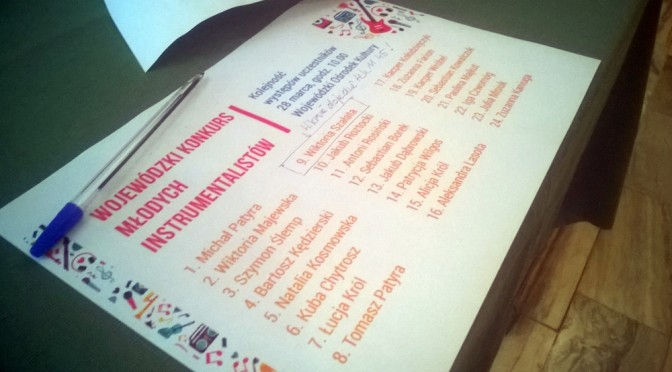 WOJEWÓDZKI KONKURS
MŁODYCH
INSTRUMENTALISTÓW
Kolejność
występów uczestników
28 marca, godz. 10.00
Wojewódzki Ośrodek Kultury
1. Michał Patyra
2. Wiktoria Majewska
3. Szymon Ślemp
4. Bartosz Kędzierski
5. Natalia Kosmowska
6. Kuba Chytrosz
7. Łucja Król
8. Tomasz Patyra
9. Wiktoria Szalska
10. Jakub Roztocki
11. Antoni Rosiński
12. Sebastian Bdyel
13. Jakub Dąbrowski
14. Patrycja Wilgos
15. Alicja Król
16. Aleksandra Lasota
17. Kacper
18. Zuzanna
19. Kacper
20. Sebastian
21. Paulina
22. Iga
23. Julia
24. Zuzanna